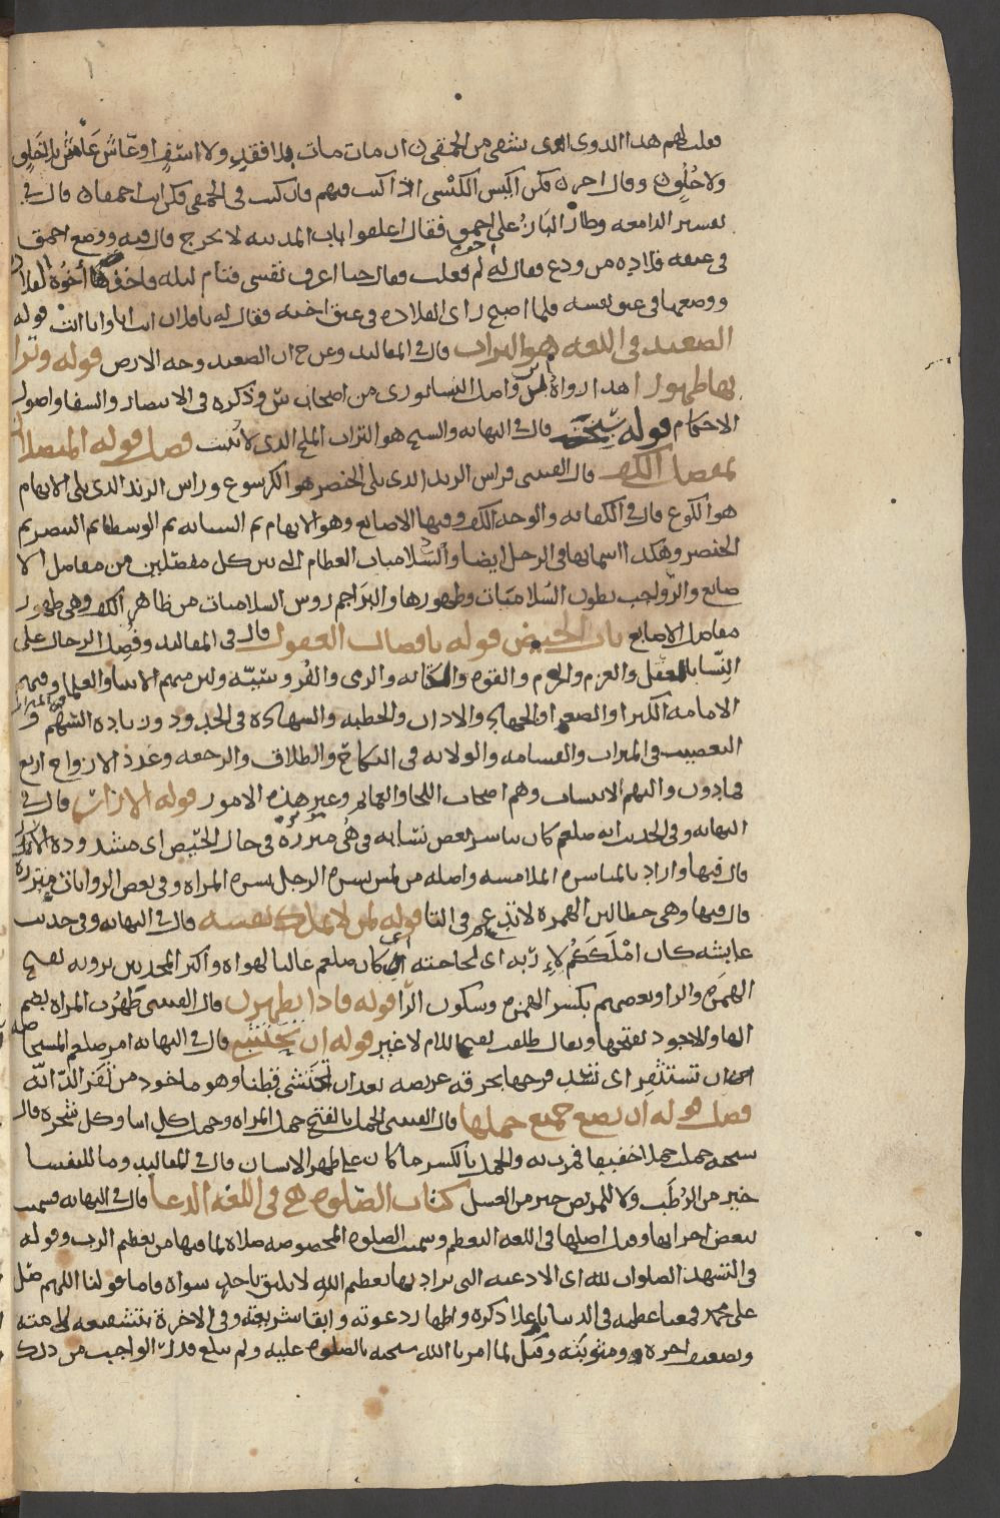 فعلت لهم هذا الدوى الذى يشفى من الحمقى ن ان مات مات بلا فقدٍ ولا اسَفٍ او عَاشَ عَاشَ بلا خَلقٍ
ولا خُلُقٍ ن وقال اخر ن فكن اكيس الكيسى اذا كنت فيهم وان كنت فى الحمقى فكن انت احمقا ن قال فى
تفسير الدامغه وطار البَازُ على احمق فقال اغلقوا باب المدينه لا يخرج قال فيه ووضع احمق
فى عنقه قلاده من ودع فقال له لم فعلت فقال حتا اعرف نفسى فنام ليله واخذها أخُوه القلا
ووضعها فى عنق نفسه فلما اصبح راى القلاده فى عنق اخيه فقال له يا فلان انت انا وانا انتْ قوله
الصعيد فى اللغه هو التراب قال فى المقاليد وعن ح ان الصعيد وجه الارض قوله وترا
بها طهورا هذا رواه واصل النيسابورى من اصحاب ش وذكره فى الانتصار والشفا واصول
الاحكام قوله قال فى النهايه والسبخ هو التراب الملح الذى لا يُنبت فصل قوله
بمفصل الكف قال العنسى فراس الزند الذى يلى الخنصر هو الكرسوع وراس الزند الذى يلى الابهام
هو الكوع قال فى الكفايه والوحه الكف وفيها الاصابع وهو الابهام ثم السبابه ثم الوسطا ثم البنصر ثم
الخنصر وهكذا اسمايها فى الرجل ايضا والسُّلاميات العظام التى بين كل مفصلين من مفاصل الا
صابع والرَّواجب بطون السُّلاميَات وظهورها والبَرَاجم روس السلاميات من ظاهر الكف وهى ظهور
مفاصل الاصابع باب الحيض قوله ناقصات العقول قال فى المقاليد وفُضِل الرجال على
النِّسا بالعقل والعزم والحزم والقوه والكتابه والرمى والفُروسيَّه ولان منهم الانبيا والعلما وفيهم
الامامه الكبرا والصغرا والجهاد والاذان والخطبه والشهاده فى الحدود وزياده السَّهْم و
التعصيب فى الميراث والقسامه والولايه فى النكاح والطلاق والرجعه وعَدد الازواج اربع
فما دون واليهم الانتساب وهم اصحاب اللحا والعمايم وغير هذه الامور قوله قال فى
النهايه وفى الحديث انه صلعم كان يباشر بعض نسايه وهى متزره فى حال الحَيض اى مشدوده الازار
قال فيها واراد بالمباشره الملامسه واصله من لمس بشره الرجل بشره المراه وفى بعض الروايات متزره
قال فيها وهى خطا لان الهمزه لا تدغم فى التا قوله لمن لا يملك نفسه قال فى النهايه وفى حديث
عايشه كان امْلَكَكُم لاِرْبه اى لحاجته اى كان صلعم غالبا لهواه واكثر المحدثين يروونه بفتح
الهمزه والرا وبعضهم بكسر الهمزه وسكون الرَّا قوله فاذا تطهرن قال العنسى طَهُرَت المراه بضم
الها والاجود بفتحها ويقال طلقت بفتح اللام لا غير قوله ان قال فى النهايه امر صلعم المستحاضه
ان تستثفِر اى تشد فرجها بخرقه عريضه بعد ان تحتشى قطنا وهو ماخود من ثَفَر الدَّابَّه
فصل قوله ان تضع جميع حملها قال العنسى الحمل بالفتح حمل المراه وحمل كل انثا وكل شجره قال
سبحنه حملت حملا خفيفا فمرت به والحمل بالكسر ما كان على ظهر الانسان قال فى المقاليد وما للنفسا
خير من الرُطَب ولا للمريض خير من العسل كتاب الصَّلوه هى فى اللغه الدعا قال فى النهايه فسميت
ببعض اجزايها وقيل اصلها فى اللغه التعظم وسميت الصلوه المخصوصه صلاه لما فيها من تعظيم الرب وقوله
فى التشهد الصلوات لله اى الادعيه التى يراد بها تعظيم الله لا يليق باحدٍ سواه فاما قولنا اللهم صَلّ
على محمد فمعناه عظمه فى الدنيا باِعلا ذكره واظهار دعوته وابقا شريعته وفى الاخرة بتشفيعه فى امته
وتضعيف اجره ومثوبَته وقيل لما امرنا الله سبحنه بالصلوه عليه ولم نبلغ قدر الواجب من ذلك